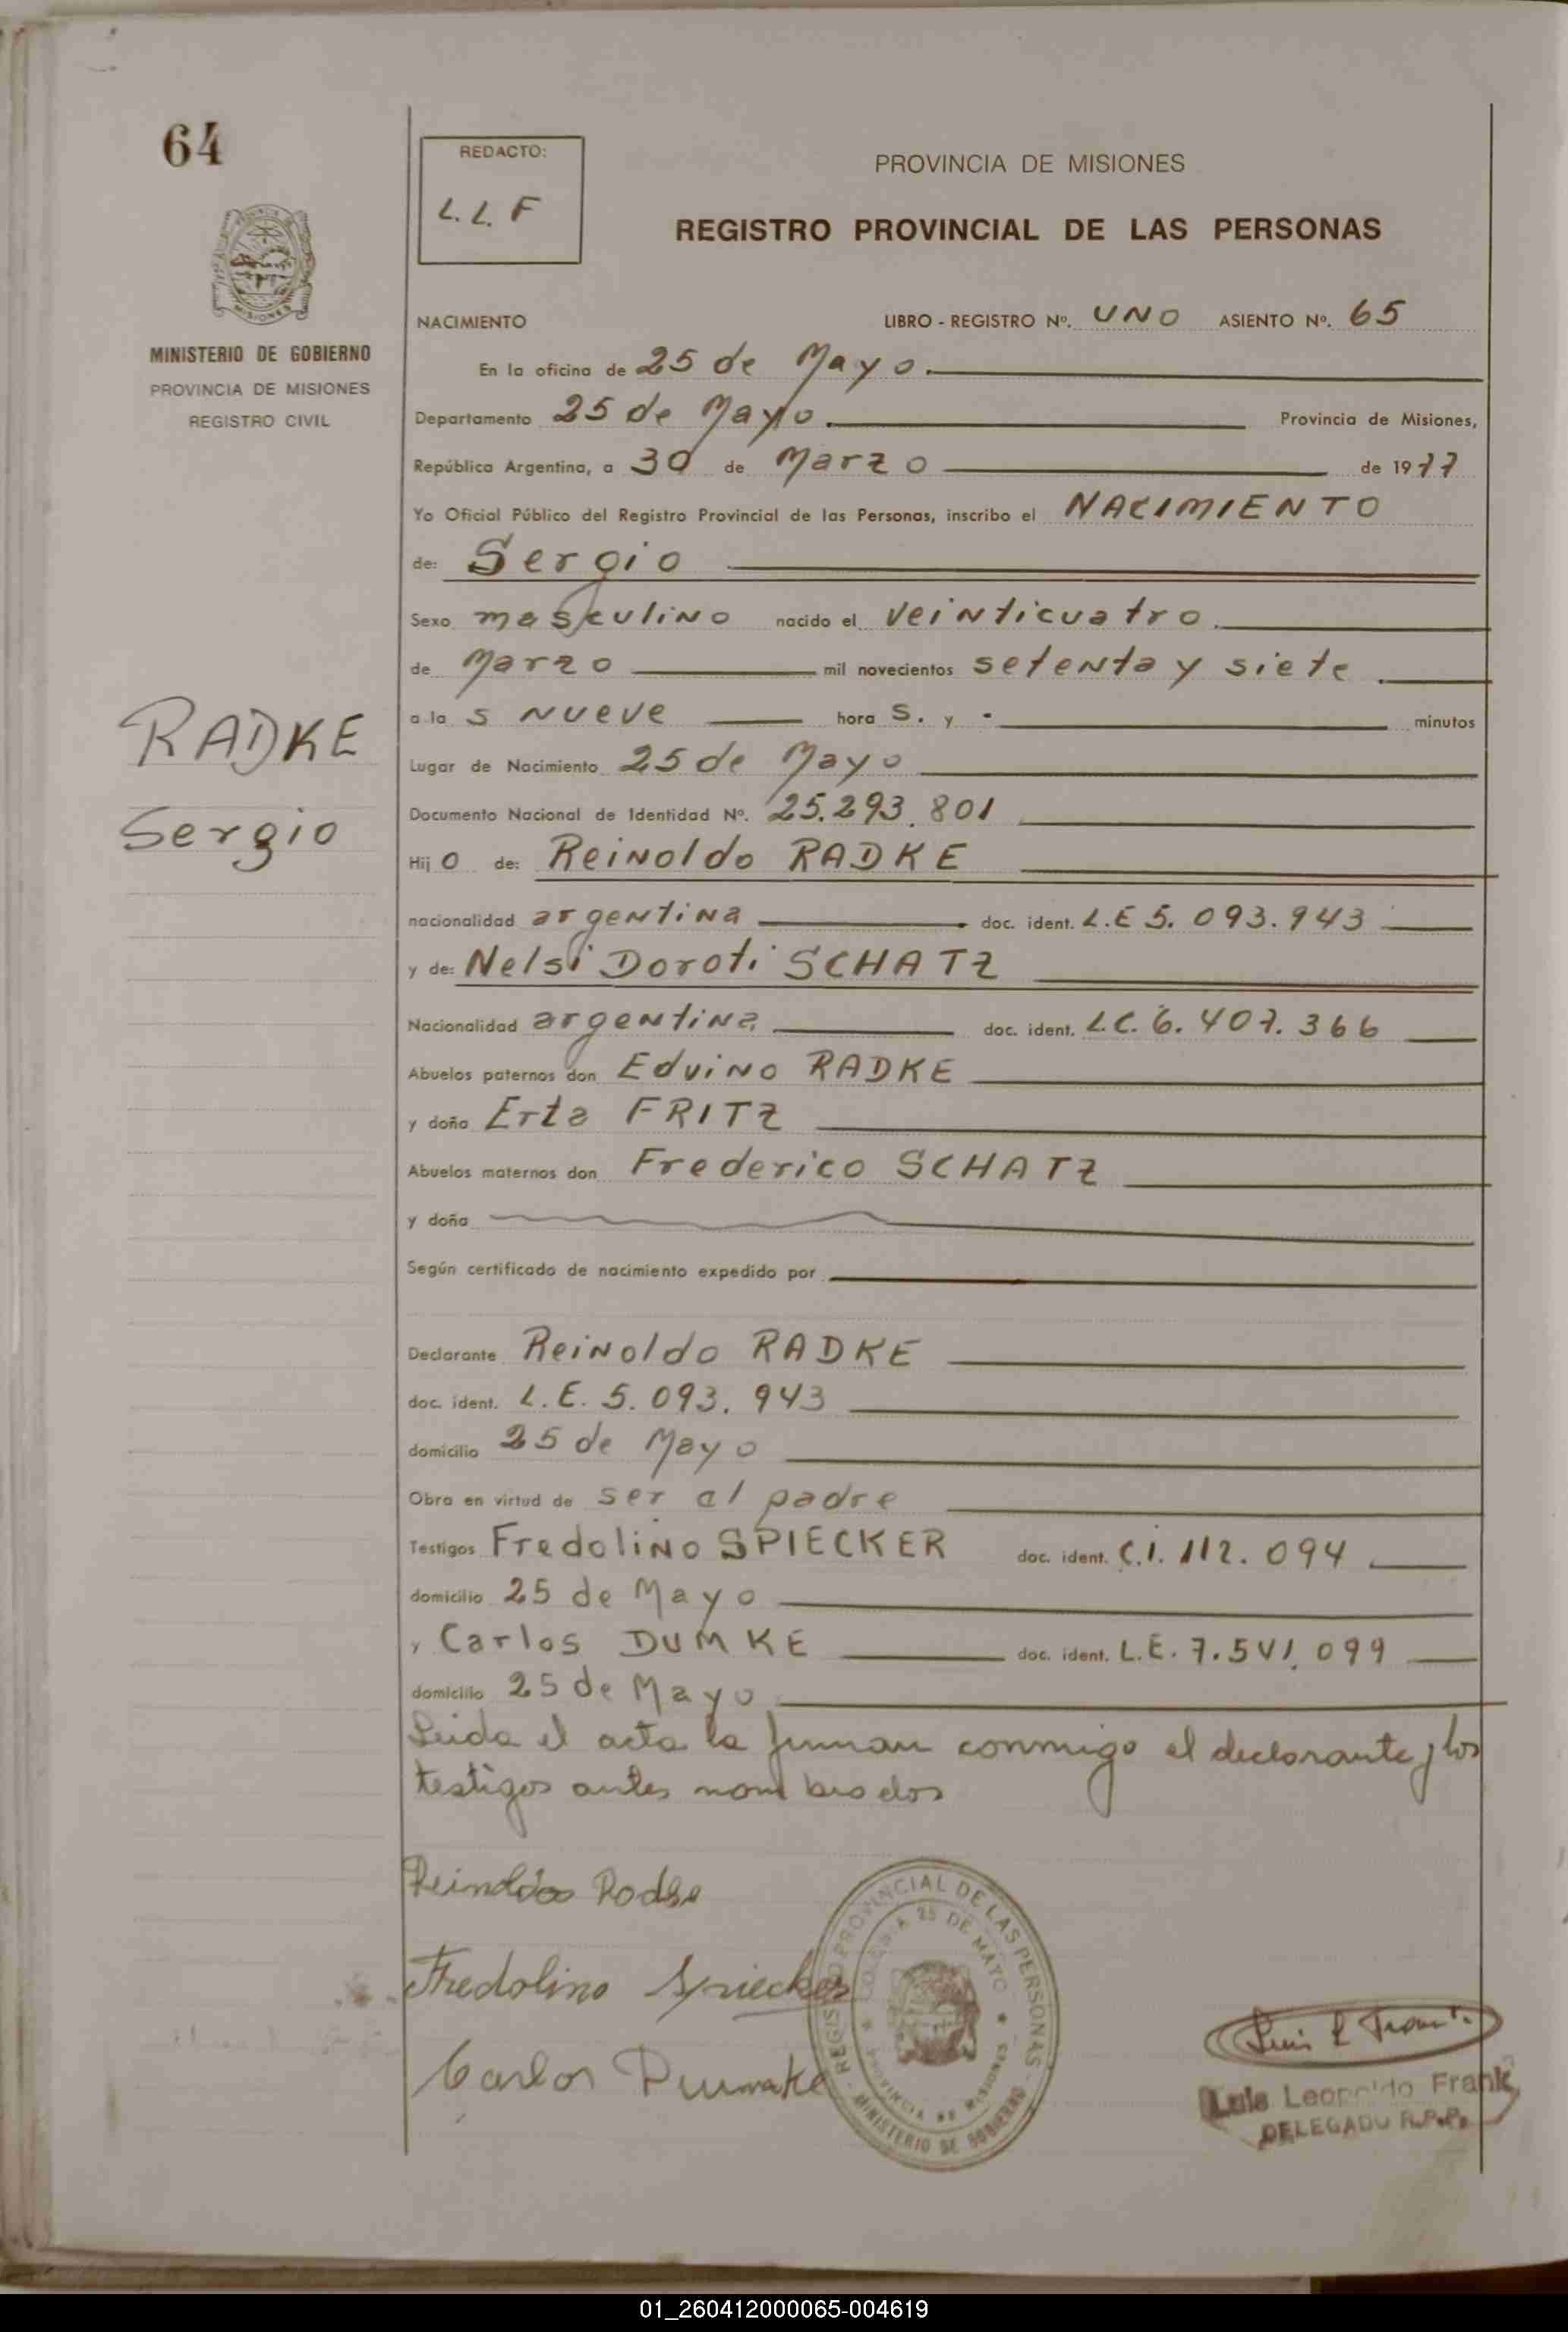 64
REDACTO:
L.L.F
PROVINCIA DE MISIONES
REGISTRO PROVINCIAL DE LAS PERSONAS
MISIONES
MINISTERIO DE GOBIERNO
PROVINCIA DE MISIONES
REGISTRO CIVIL
NACIMIENTO LIBRO - REGISTRO Nº. UNO ASIENTO Nº. 65
En la oficina de 25 de Mayo.
Departamento 25 de Mayo. Provincia de Misiones,
República Argentina, a 30 de Marzo de 1977
Yo Oficial Público del Registro Provincial de las Personas, inscribo el NACIMIENTO
de: Sergio
Sexo masculino nacido el veinticuatro.
de Marzo mil novecientos setenta y siete.
a la s nueve hora s. y - minutos
RADKE
Sergio
Lugar de Nacimiento 25 de Mayo
Documento Nacional de Identidad Nº. 25.293.801
Hij o de: Reinoldo RADKE
nacionalidad argentina doc. ident. L.E 5.093.943
y de: Nelsi Doroti SCHATZ
Nacionalidad argentina doc. ident. L.C. 6.407.366
Abuelos paternos don Edvino RADKE
y doña Erta FRITZ
Abuelos maternos don Frederico SCHATZ
y doña
Según certificado de nacimiento expedido por
Declarante Reinoldo RADKE
doc. ident. L.E. 5.093.943
domicilio 25 de Mayo
Obra en virtud de ser el padre
Testigos Fredolino SPIECKER doc. ident. C.i. 112.094
domicilio 25 de Mayo
y Carlos DUMKE doc. ident. L.E. 7.541.099
domicilio 25 de Mayo
Leida el acta la firman conmigo el declarante y los
testigos antes nombrados
Reinoldo Radke
Fredolino Spiecker
Carlos Dumke
REGISTRO PROVINCIAL DE LAS PERSONAS
COLONIA 25 DE MAYO
PROVINCIA DE MISIONES
MINISTERIO DE GOBIERNO
Luis L Frank
Luis Leopoldo Frank
DELEGADO R.P.P.
01_260412000065-004619